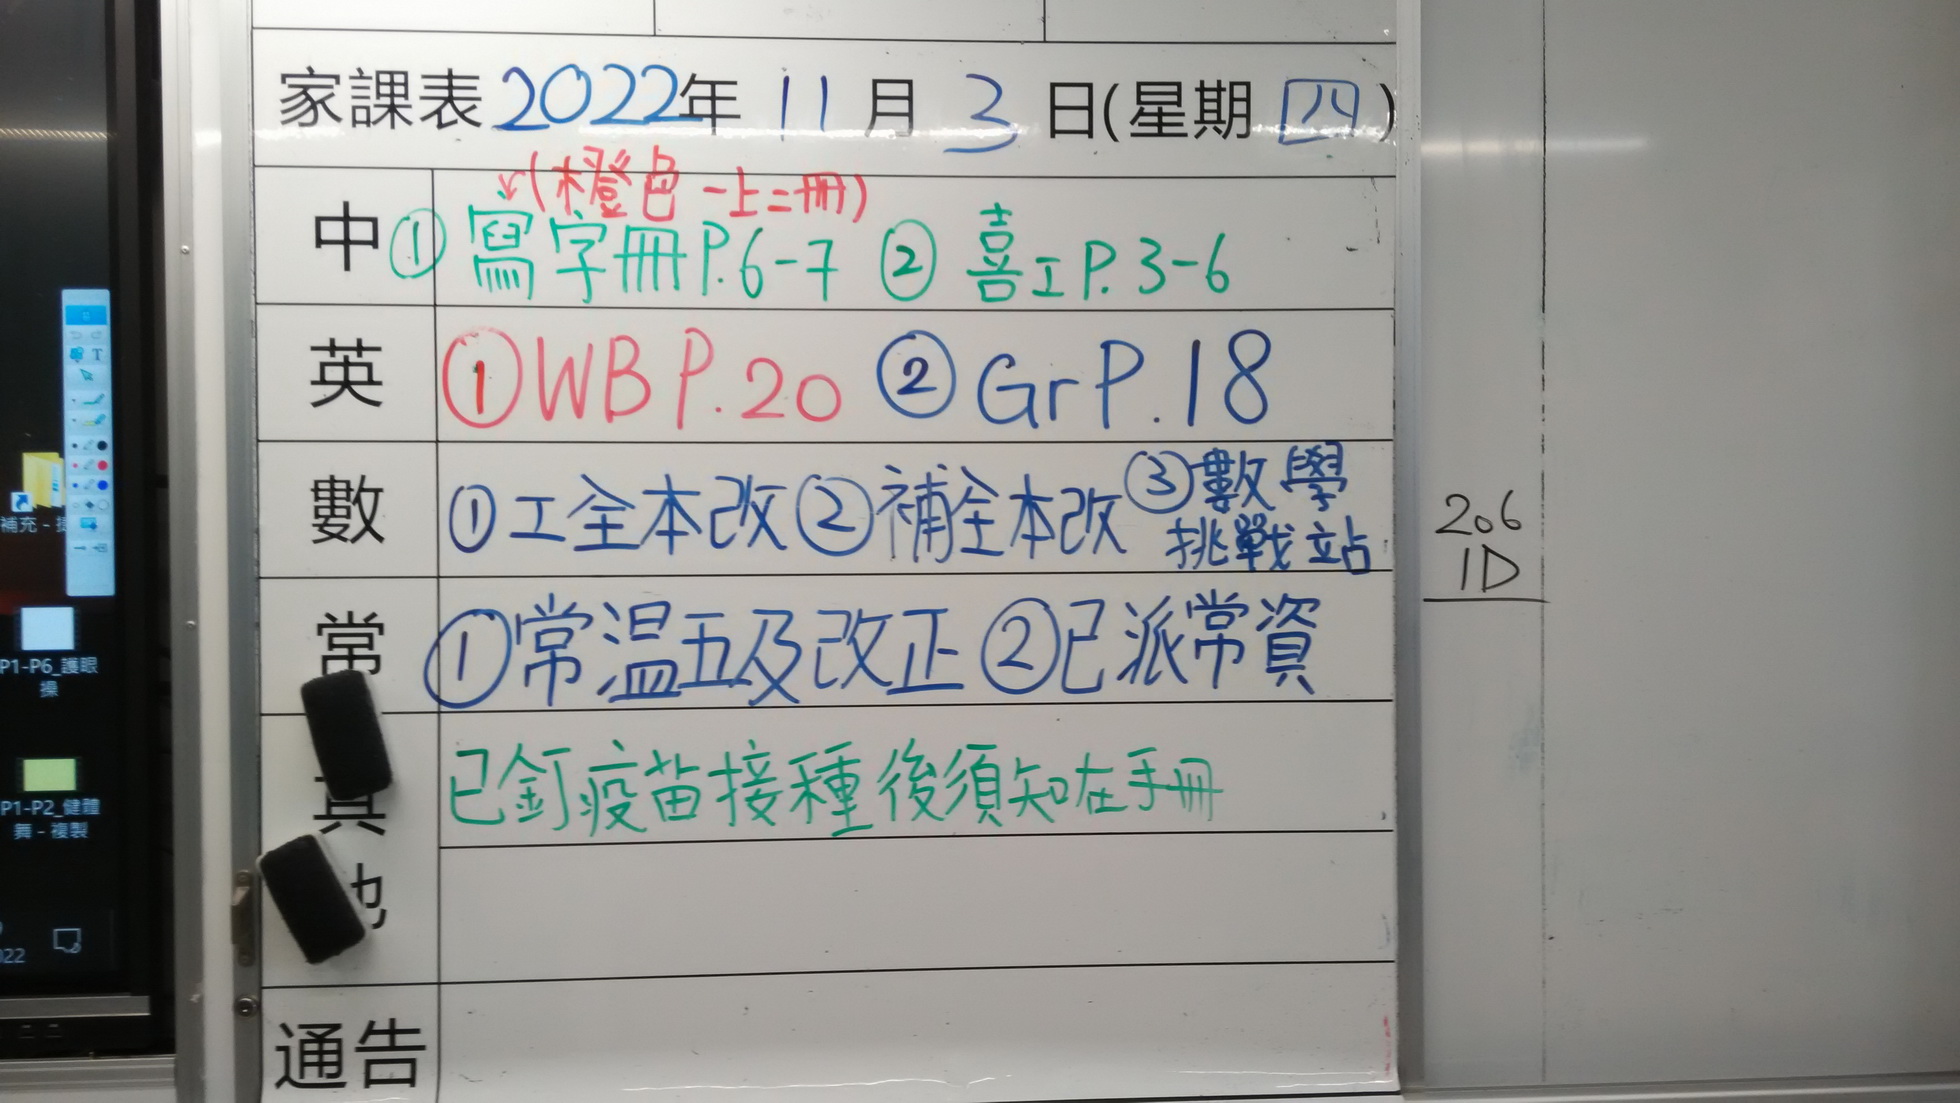 家課表 2022年 11 月 3 日(星期 四)
(橙色 一上二冊)
中 ① 寫字冊P.6-7 ② 喜工P.3-6
英 ① WB P.20 ② Gr P.18
數 ① 工全本改 ② 補全本改 ③ 數學
挑戰站
常 ① 常温五及改正 ② 已派常資
其他 已釘疫苗接種後須知在手冊
通告
206
1D
補充 -
P1-P6_護眼
操
P1-P2_健體
舞 - 複製
022